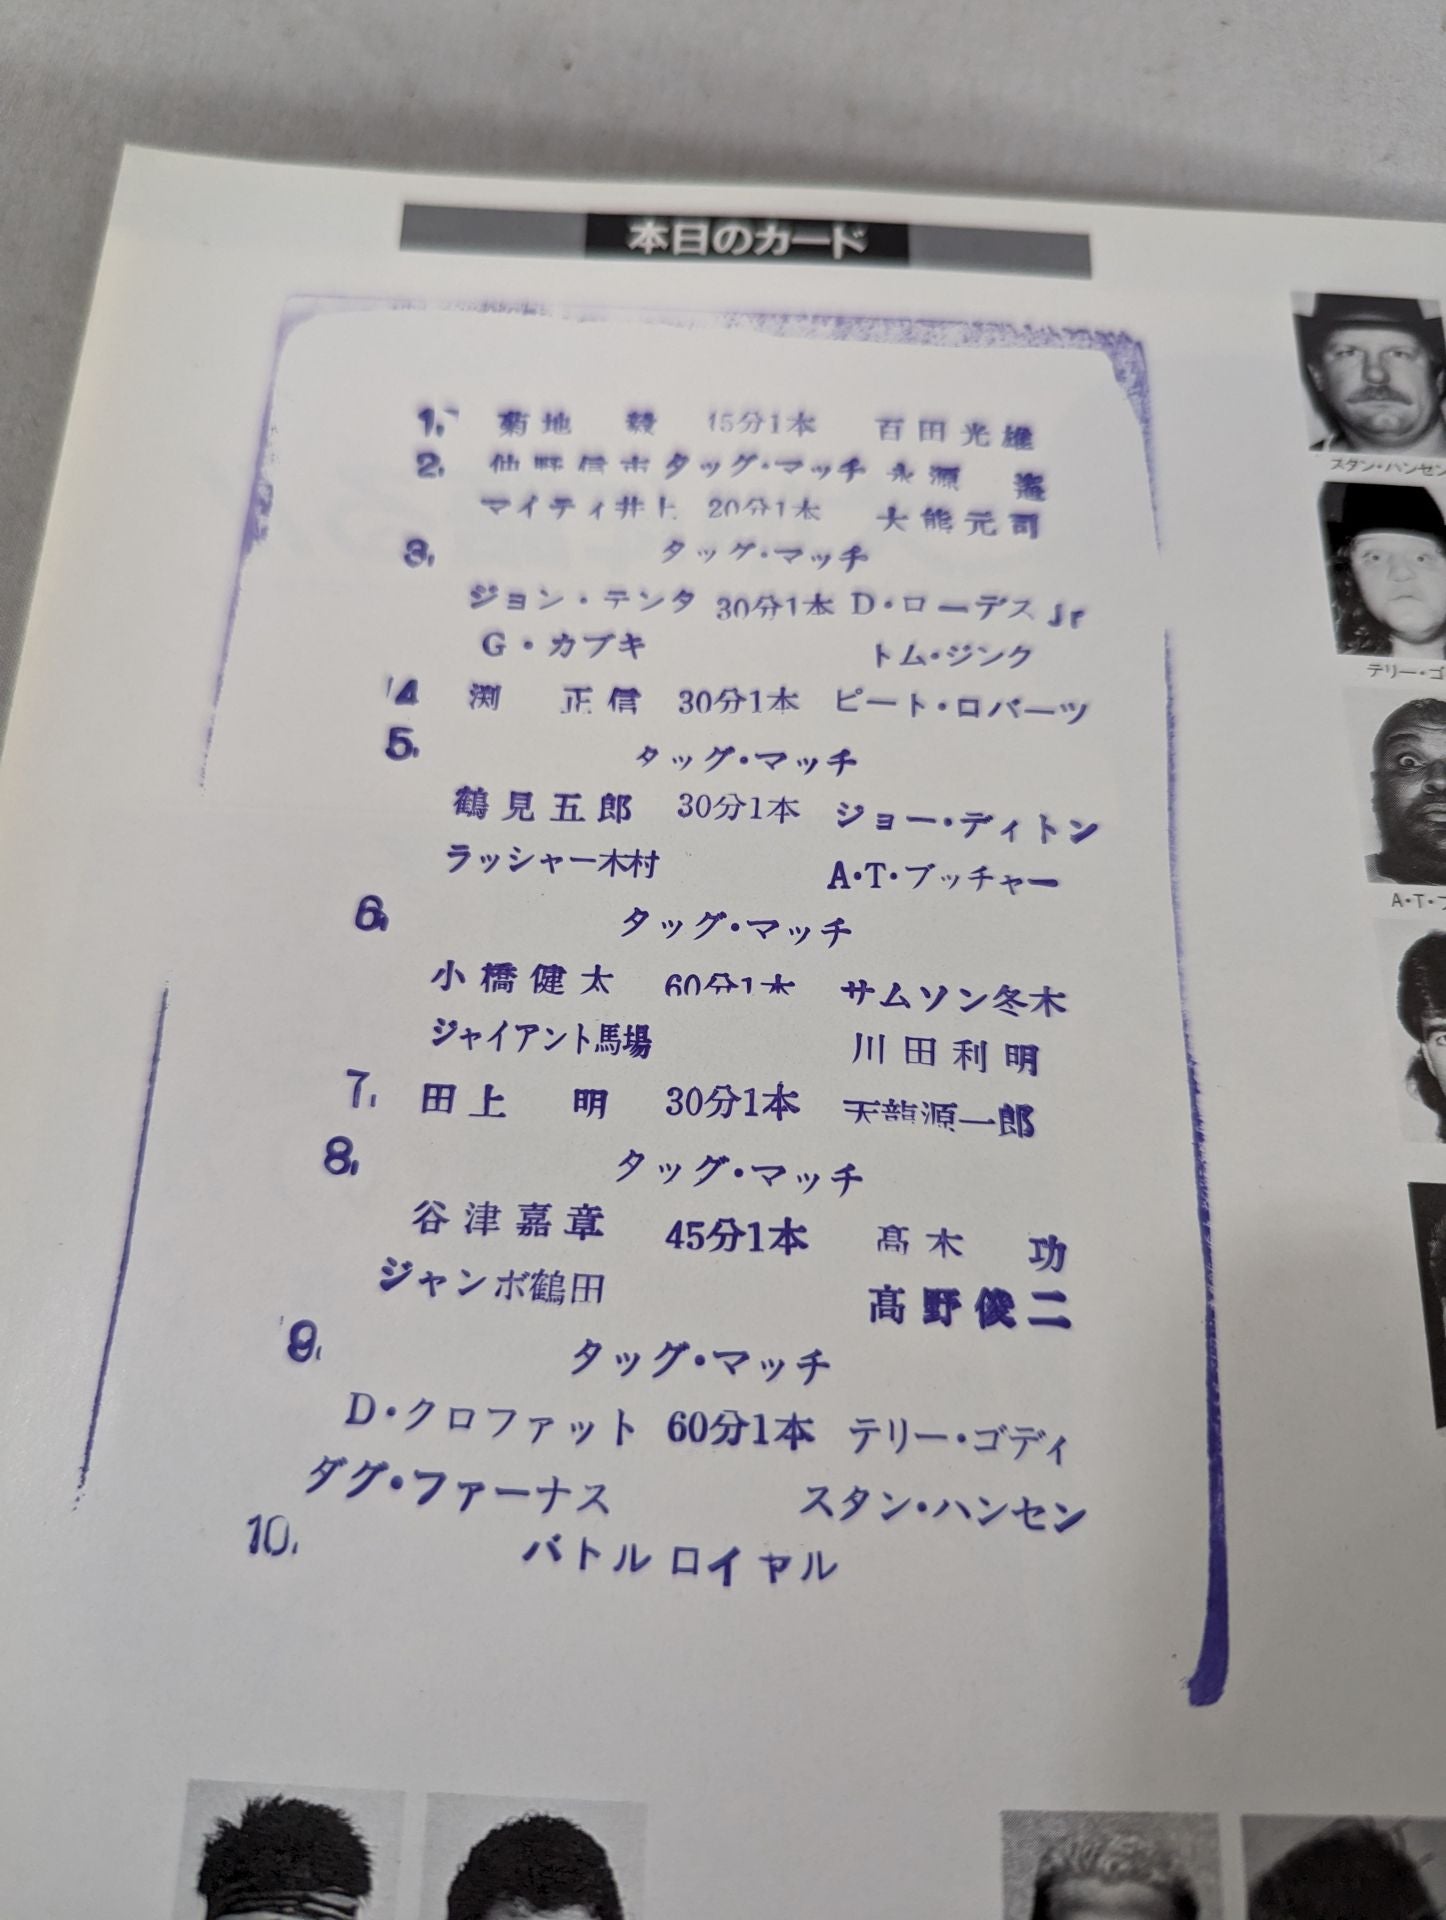 本日のカード
1. 菊地 毅 15分1本 百田光雄
2. 仙野信市 タッグ・マッチ 永源 遙
マイティ井上 20分1本 大熊元司
3. タッグ・マッチ
ジョン・テンタ 30分1本 D・ローデスJr
G・カブキ トム・ジンク
4 渕 正信 30分1本 ピート・ロバーツ
5. タッグ・マッチ
鶴見五郎 30分1本 ジョー・ディトン
ラッシャー木村 A・T・ブッチャー
6. タッグ・マッチ
小橋健太 60分1本 サムソン冬木
ジャイアント馬場 川田利明
7. 田上 明 30分1本 天龍源一郎
8. タッグ・マッチ
谷津嘉章 45分1本 髙木 功
ジャンボ鶴田 髙野俊二
9. タッグ・マッチ
D・クロファット 60分1本 テリー・ゴディ
ダグ・ファーナス スタン・ハンセン
10. バトルロイヤル
スタン・ハンセン
テリー・ゴ
A・T・ブ